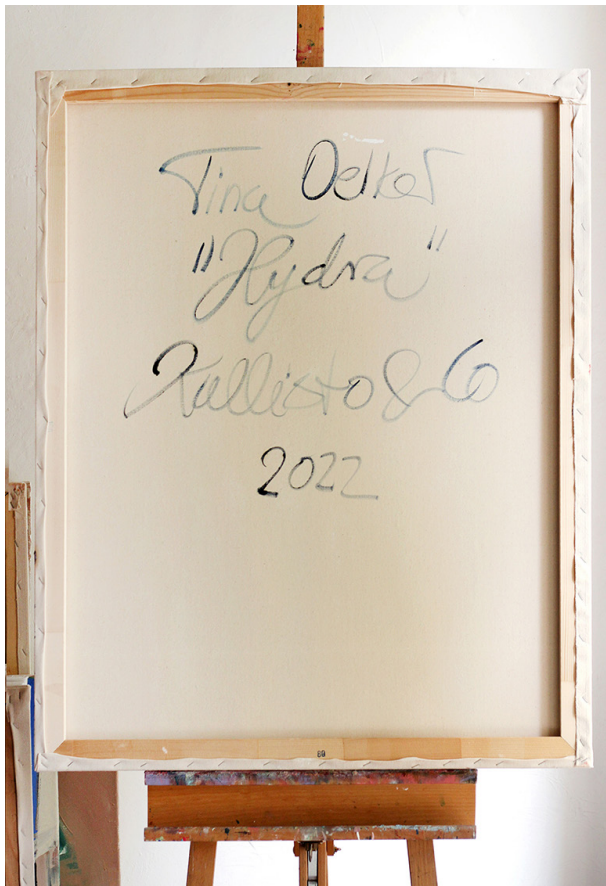 Tina Oelker
"Hydra"
Kallisto & Co
2022
60